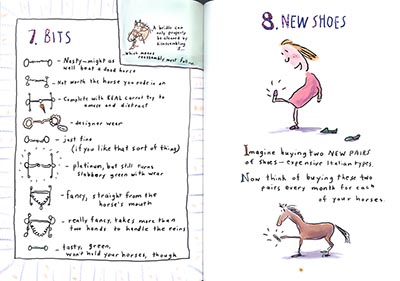 7. BITS
A bridle can
only properly
be cleaned by
dismantling
it...
...which means
reasonably must fail...
- Nasty-might as
well beat a dead horse
- Not worth the horse you rode in on
- Complete with REAL carrot try to
amuse and distract
- designer wear
- just fine
(if you like that sort of thing)
- platinum, but still turns
slobbery green with wear
- fancy, straight from the
horse's mouth
- really fancy, takes more than
two hands to handle the reins
- tasty, green,
won't hold your horses, though
8. NEW SHOES
Imagine buying two NEW PAIRS
of shoes - expensive Italian types.
Now think of buying these two
pairs every month for each
of your horses.